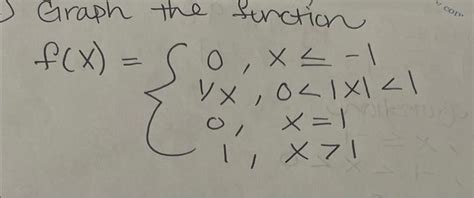 ) Graph the function
f(x) = { 0, x ≤ -1
1/x, 0<|x|<1
0, x=1
1, x>1